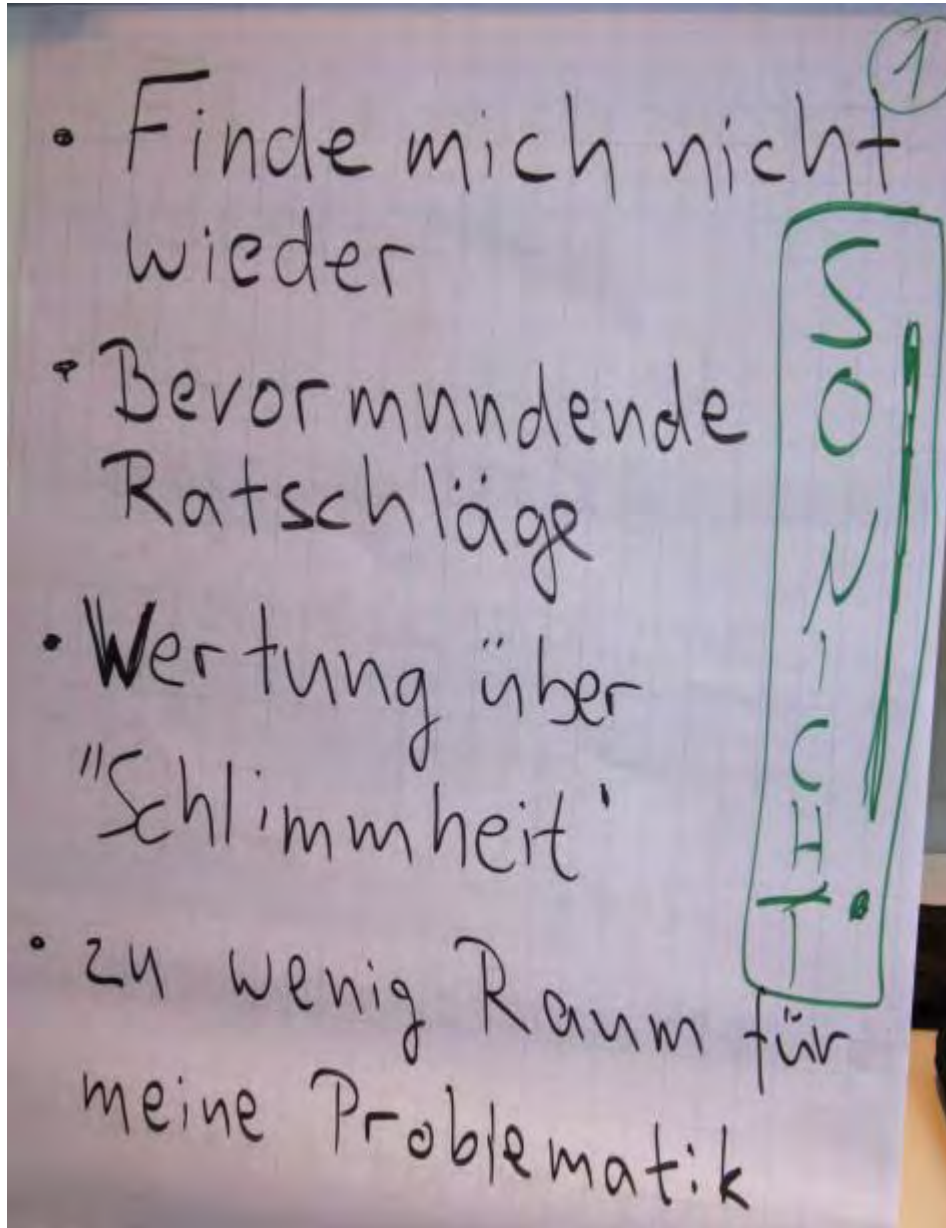 1
• Finde mich nicht
wieder
• Bevormundende
Ratschläge
• Wertung über
"Schlimmheit'
• zu wenig Raum für
meine Problematik
SO NICHT!